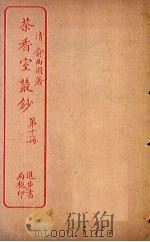 清俞曲園著
茶香室叢鈔
第十二冊
進步書
局校印